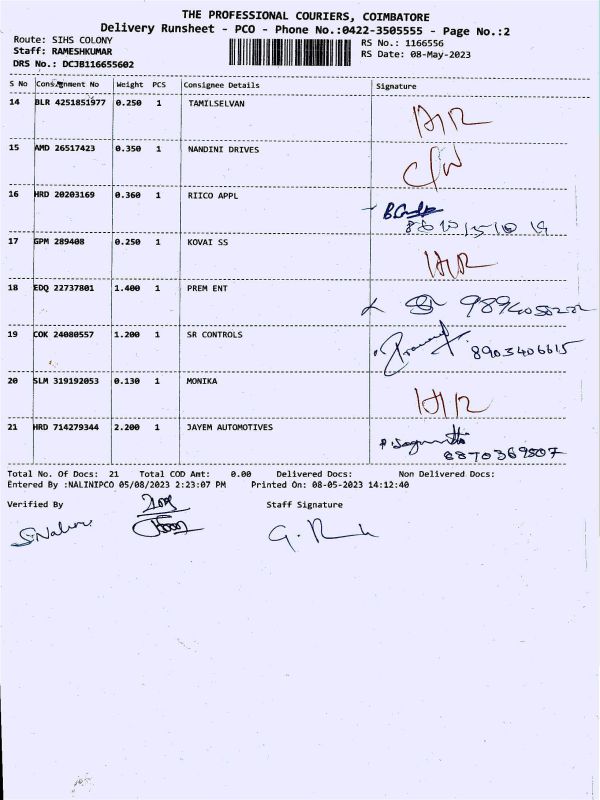 THE PROFESSIONAL COURIERS, COIMBATORE
Delivery Runsheet - PCO - Phone No.:0422-3505555 - Page No.:2
Route: SIHS COLONY
Staff: RAMESHKUMAR
DRS No.: DCJB116655602
RS No.: 1166556
RS Date: 08-May-2023
S No Consignment No Weight PCS Consignee Details Signature
14 BLR 4251851977 0.250 1 TAMILSELVAN
15 AMD 26517423 0.350 1 NANDINI DRIVES
16 HRD 20203169 0.360 1 RIICO APPL
17 GPM 289408 0.250 1 KOVAI SS
18 EDQ 22737801 1.400 1 PREM ENT
19 COK 24080557 1.200 1 SR CONTROLS
8903406615
20 SLM 319192053 0.130 1 MONIKA
21 HRD 714279344 2.200 1 JAYEM AUTOMOTIVES
8870369507
Total No. Of Docs: 21 Total COD Amt: 0.00 Delivered Docs: Non Delivered Docs:
Entered By :NALINIPCO 05/08/2023 2:23:07 PM Printed On: 08-05-2023 14:12:40
Verified By Staff Signature